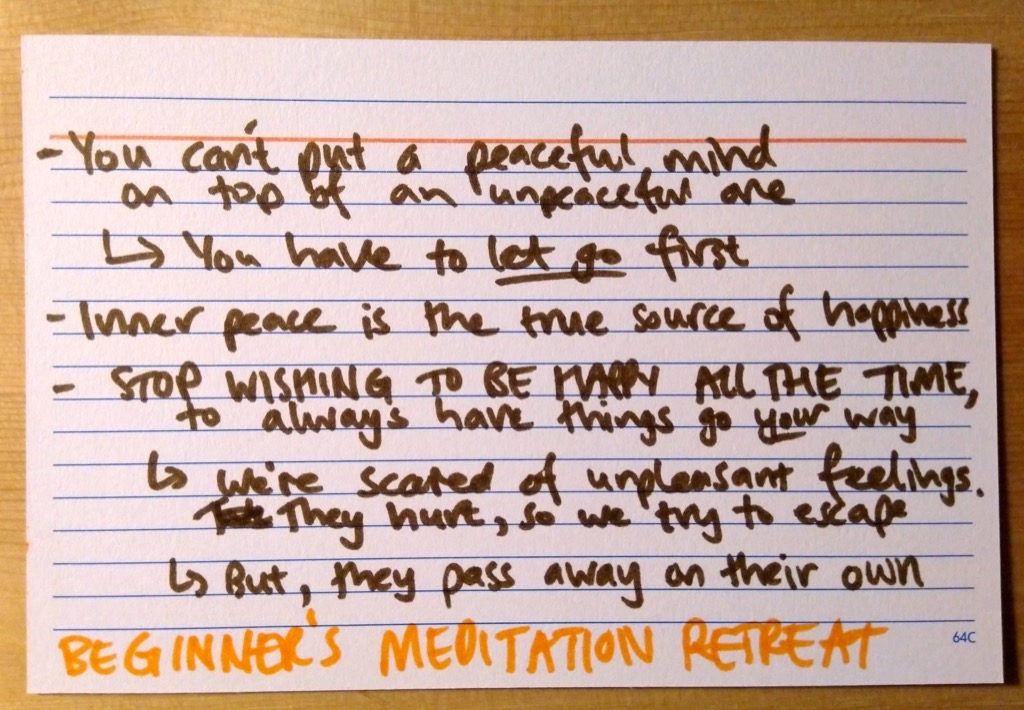 - You can't put a peaceful mind
on top of an unpeaceful one
↳ You have to let go first
- Inner peace is the true source of happiness
- STOP WISHING TO BE HAPPY ALL THE TIME,
to always have things go your way
↳ We're scared of unpleasant feelings.
They hurt, so we try to escape
↳ But, they pass away on their own
BEGINNER'S MEDITATION RETREAT
64C